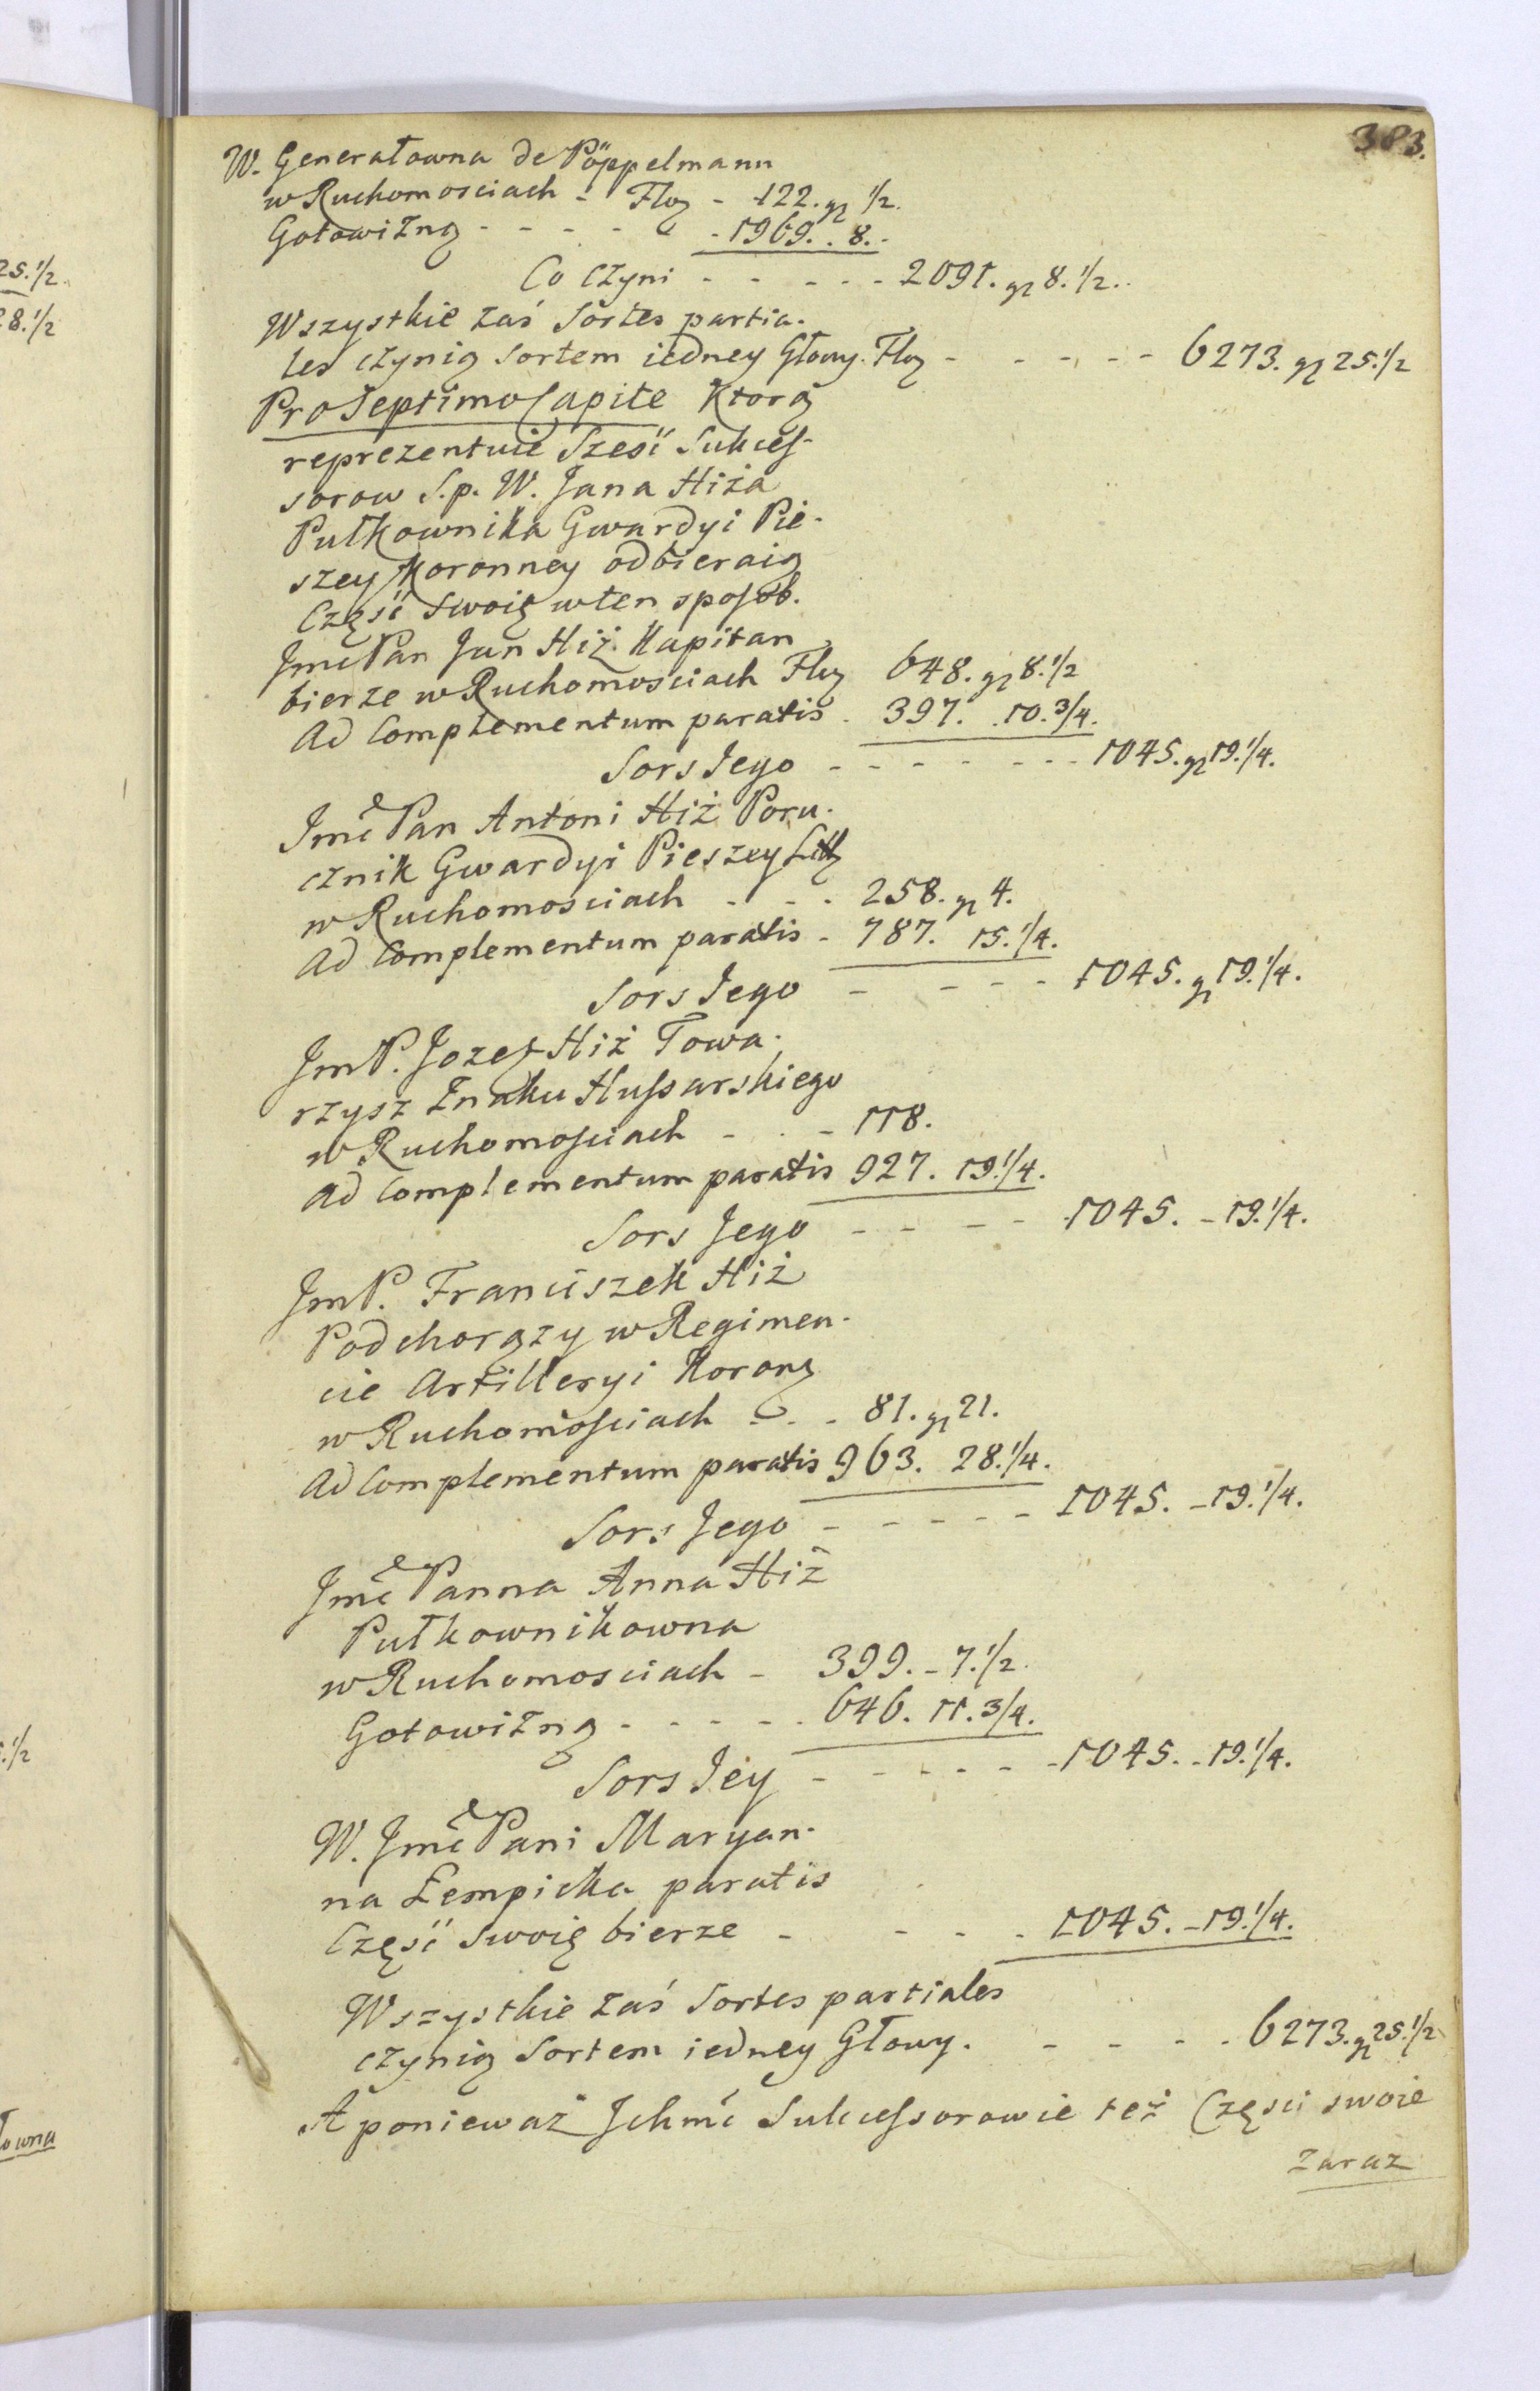 383.
W. Generałowna de Pöppelmann
w Ruchomosciach - Flor - 122. gr 1/2.
Gotowizną - - - - - - 1969. . 8. -
Co czyni - - - - - 2091. gr 8. 1/2..
Wszystkie zaś Sortes partia-
les czynią Sortem iedney Głowy. Flor - - - - - 6273. gr 25. 1/2
Pro Septimo Capite Ktorą
reprezentuie Sześć Sukces-
sorow S.p. W. Jana Hiża
Pułkownika Gwardyi Pie-
szey Koronney odbieraią
Część swoię w ten sposob.
Jmć Pan Jan Hiż. Kapitan
bierze w Ruchomościach Flor 648. gr 8. 1/2
Ad Complementum paratis - 397. . 10. 3/4.
Sors Jego - - - - - - - 1045. gr 19. 1/4.
Jmć Pan Antoni Hiż Poru-
cznik Gwardyi Pieszey Litt
w Ruchomosciach - - - 258. gr 4.
Ad Complementum paratis - 787. 15. 1/4.
Sors Jego - - - - 1045. gr 19. 1/4.
Jm P. Jozef Hiż Towa-
rzysz Znaku Hussarskiego
w Ruchomosciach - - - 118.
Ad Complementum paratis 927. 19. 1/4.
Sors Jego - - - - 1045. - 19. 1/4.
Jm P. Franciszek Hiż
Podchorązy w Regimen-
cie Artilleryi Koron
w Ruchomościach - - - 81. gr 21.
Ad Complementum paratis 963. 28. 1/4.
Sors Jego - - - - - 1045. - 19. 1/4.
Jmć Panna Anna Hiż
Pułkownikowna
w Ruchomosciach - 399. - 7. 1/2.
Gotowizną - - - - - 646. 11. 3/4.
Sors Jey - - - - - - 1045. - 19. 1/4.
W. Jmć Pani Maryan-
na Łempicka paratis
Część swoię bierze - - - - 1045. - 19. 1/4.
Wszystkie zaś Sortes partiales
czynią Sortem iedney Głowy. - - - - 6273. gr 25. 1/2
A ponieważ Jchmć Sukcessorowie też Części swoie
zaraz
25. 1/2.
28. 1/2
. 1/2
łowna